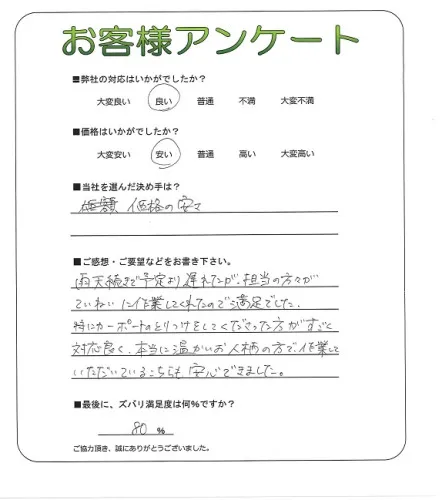 お客様アンケート
■弊社の対応はいかがでしたか？
大変良い 良い 普通 不満 大変不満
■価格はいかがでしたか？
大変安い 安い 普通 高い 大変高い
■当社を選んだ決め手は？
価格の安さ
■ご感想・ご要望などをお書き下さい。
雨天続きで予定より遅れたが、担当の方々が
ていねいに作業してくれたので満足でした。
特にカーポートのとりつけをしてくださった方がすごく
対応良く、本当に温かいお人柄の方で、作業して
いただいているこちらも安心できました。
■最後に、ズバリ満足度は何%ですか？
80 %
ご協力頂き、誠にありがとうございました。